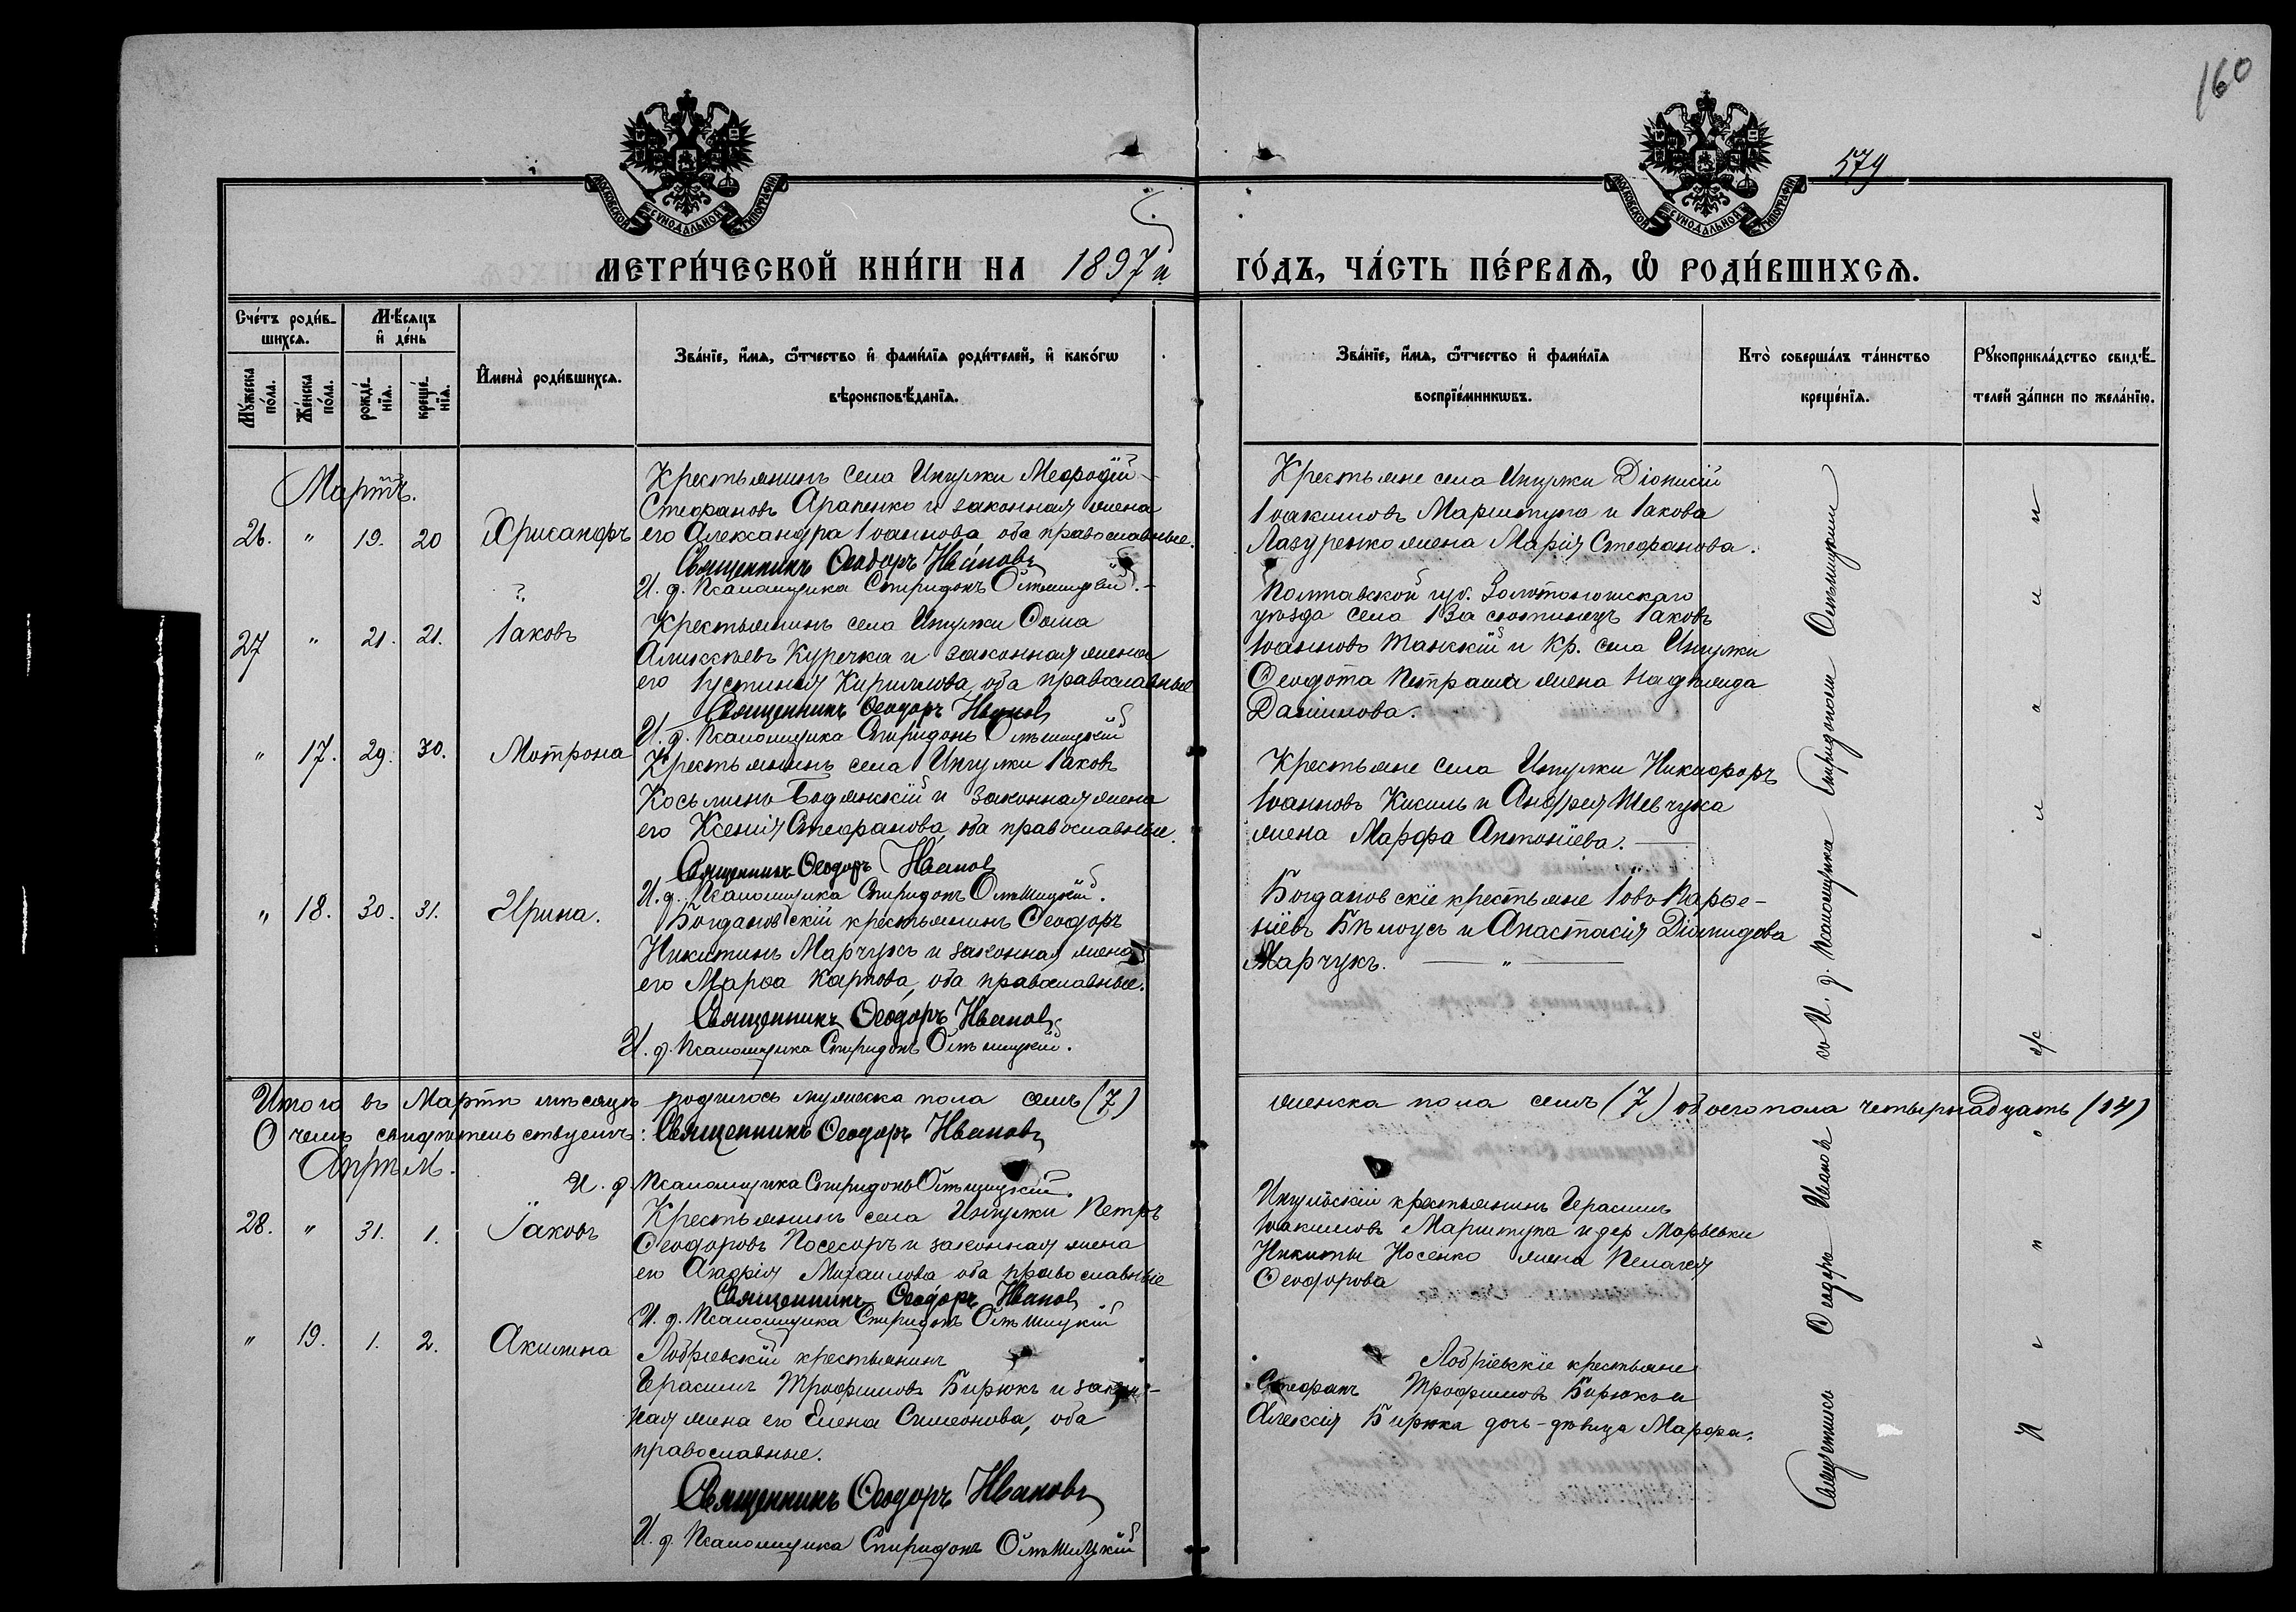 160
579
МОСКОВСКОЙ СѴНОДАЛЬНОЙ ТИПОГРАФІИ
МОСКОВСКОЙ СѴНОДАЛЬНОЙ ТИПОГРАФІИ
МЕТРИ́ЧЕСКОЙ КНИ́ГИ НА 1897й ГО́ДЪ, ЧА́СТЬ ПЕ́РВАѦ, Ѿ РОДИ́ВШИХСѦ.
Сче́тъ роди́в-
шихсѧ.
Мꙋ́жеска по́ла.
Же́нска по́ла.
Мѣ́сѧцъ
и҆ де́нь
рожде́-нїѧ.
креще́-нїѧ.
И҆мена̀ роди́вшихсѧ.
Зва́нїе, и҆́мѧ, ѻ҆́тчество и҆ фами́лїѧ роди́телей, и҆ како́гѡ
вѣроисповѣ́данїѧ.
Зва́нїе, и҆́мѧ, ѻ҆́тчество и҆ фами́лїѧ
воспрїе́мникѡвъ.
Кто̀ соверша́лъ та́инство
креще́нїѧ.
Рꙋкоприкла́дство свидѣ́-
телей за́писи по жела́нїю.
Мартъ.
26. " 19. 20 Хрисанфъ
Крестьянинъ села Ингулки Мефодій
Стефановъ Арапенко и законная жена
его Александра Іоаннова, оба православные.
Священникъ Ѳеодоръ Ивановъ
И. д. Псаломщика Спиридонъ
Крестьяне села Ингулки Діонисій
Іоакимовъ Марштупа и Іакова
Лазуренко жена Марія Стефанова.
27 " 21. 21. Іаковъ
Крестьянинъ села Ингулки Ѳома
Алексѣевъ Курочка и законная жена
его Іустинія Кириллова, оба православные
Священникъ Ѳеодоръ Ивановъ
И. д. Псаломщика Спиридонъ
Полтавской губ. Золотоношскаго
уѣзда села Іаковъ
Іоанновъ Танскій и кр. села Ингулки
Ѳеодота Петраша жена Надежда
Данилова.
" 17. 29. 30. Мотрона
Крестьянинъ села Ингулки Іаковъ
Косьминъ Бодянскій и законная жена
его Ксенія Стефанова, оба православные.
Священникъ Ѳеодоръ Ивановъ
И. д. Псаломщика Спиридонъ
Крестьяне села Ингулки Никифоръ
Іоанновъ Кисиль и Андрея Шевчука
жена Марфа Антоніева.
" 18. 30. 31. Ирина.
Богдановскій крестьянинъ Ѳеодоръ
Никитинъ Марчукъ и законная жена
его Марѳа Карпова, оба православные.
Священникъ Ѳеодоръ Ивановъ
И. д. Псаломщика Спиридонъ
Богдановскіе крестьяне Іовъ Парѳе-
ніевъ Бѣлоусъ и Анастасія Діомидова
Марчукъ. "
Итого въ Мартѣ мѣсяцѣ родилось мужеска пола семь (7) женска пола семь (7) обоего пола четырнадцать (14)
О чемъ свидѣтельствуемъ: Священникъ Ѳеодоръ Ивановъ
И. д. Псаломщика Спиридонъ
28. " 31. 1. Іаковъ
Крестьянинъ села Ингулки Петръ
Ѳеодоровъ Посесоръ и законная жена
его Михаилова, оба православные
Священникъ Ѳеодоръ Ивановъ
И. д. Псаломщика Спиридонъ
Ингульскій крестьянинъ Герасимъ
Іоакимовъ Марштупа и дер. Марьевки
Никиты Носенко жена Пелагея
Ѳеодорова
" 19. 1. 2. Акилина
крестьянинъ
Герасимъ Трофимовъ Бирюкъ и закон-
ная жена его Елена Симеонова, оба
православные.
Священникъ Ѳеодоръ Ивановъ
И. д. Псаломщика Спиридонъ
крестьяне
Стефанъ Трофимовъ Бирюкъ и
Алексія Бирюка дочь-дѣвица Марфа.
Священникъ Ѳеодоръ Ивановъ
со И. д. Псаломщика Спиридономъ